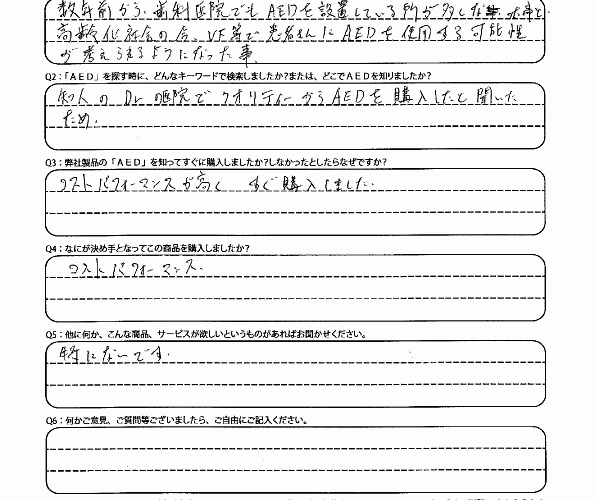 数年前から、歯科医院でもAEDを設置している所が多くな った事と
高齢化社会の今、VF等で患者さんにAEDを使用する可能性
が考えられるようになった事。
Q2：「AED」を探す時に、どんなキーワードで検索しましたか？または、どこでAEDを知りましたか？
知人のDr の医院でクオリティーからAEDを購入したと聞いた
ため.
Q3：弊社製品の「AED」を知ってすぐに購入しましたか？しなかったとしたらなぜですか？
コストパフォーマンスが高く すぐ購入しました.
Q4：なにが決め手となってこの商品を購入しましたか？
コストパフォーマンス.
Q5：他に何か、こんな商品、サービスが欲しいというものがあればお聞かせください。
特にないです.
Q6：何かご意見、ご質問等ございましたら、ご自由にご記入ください。